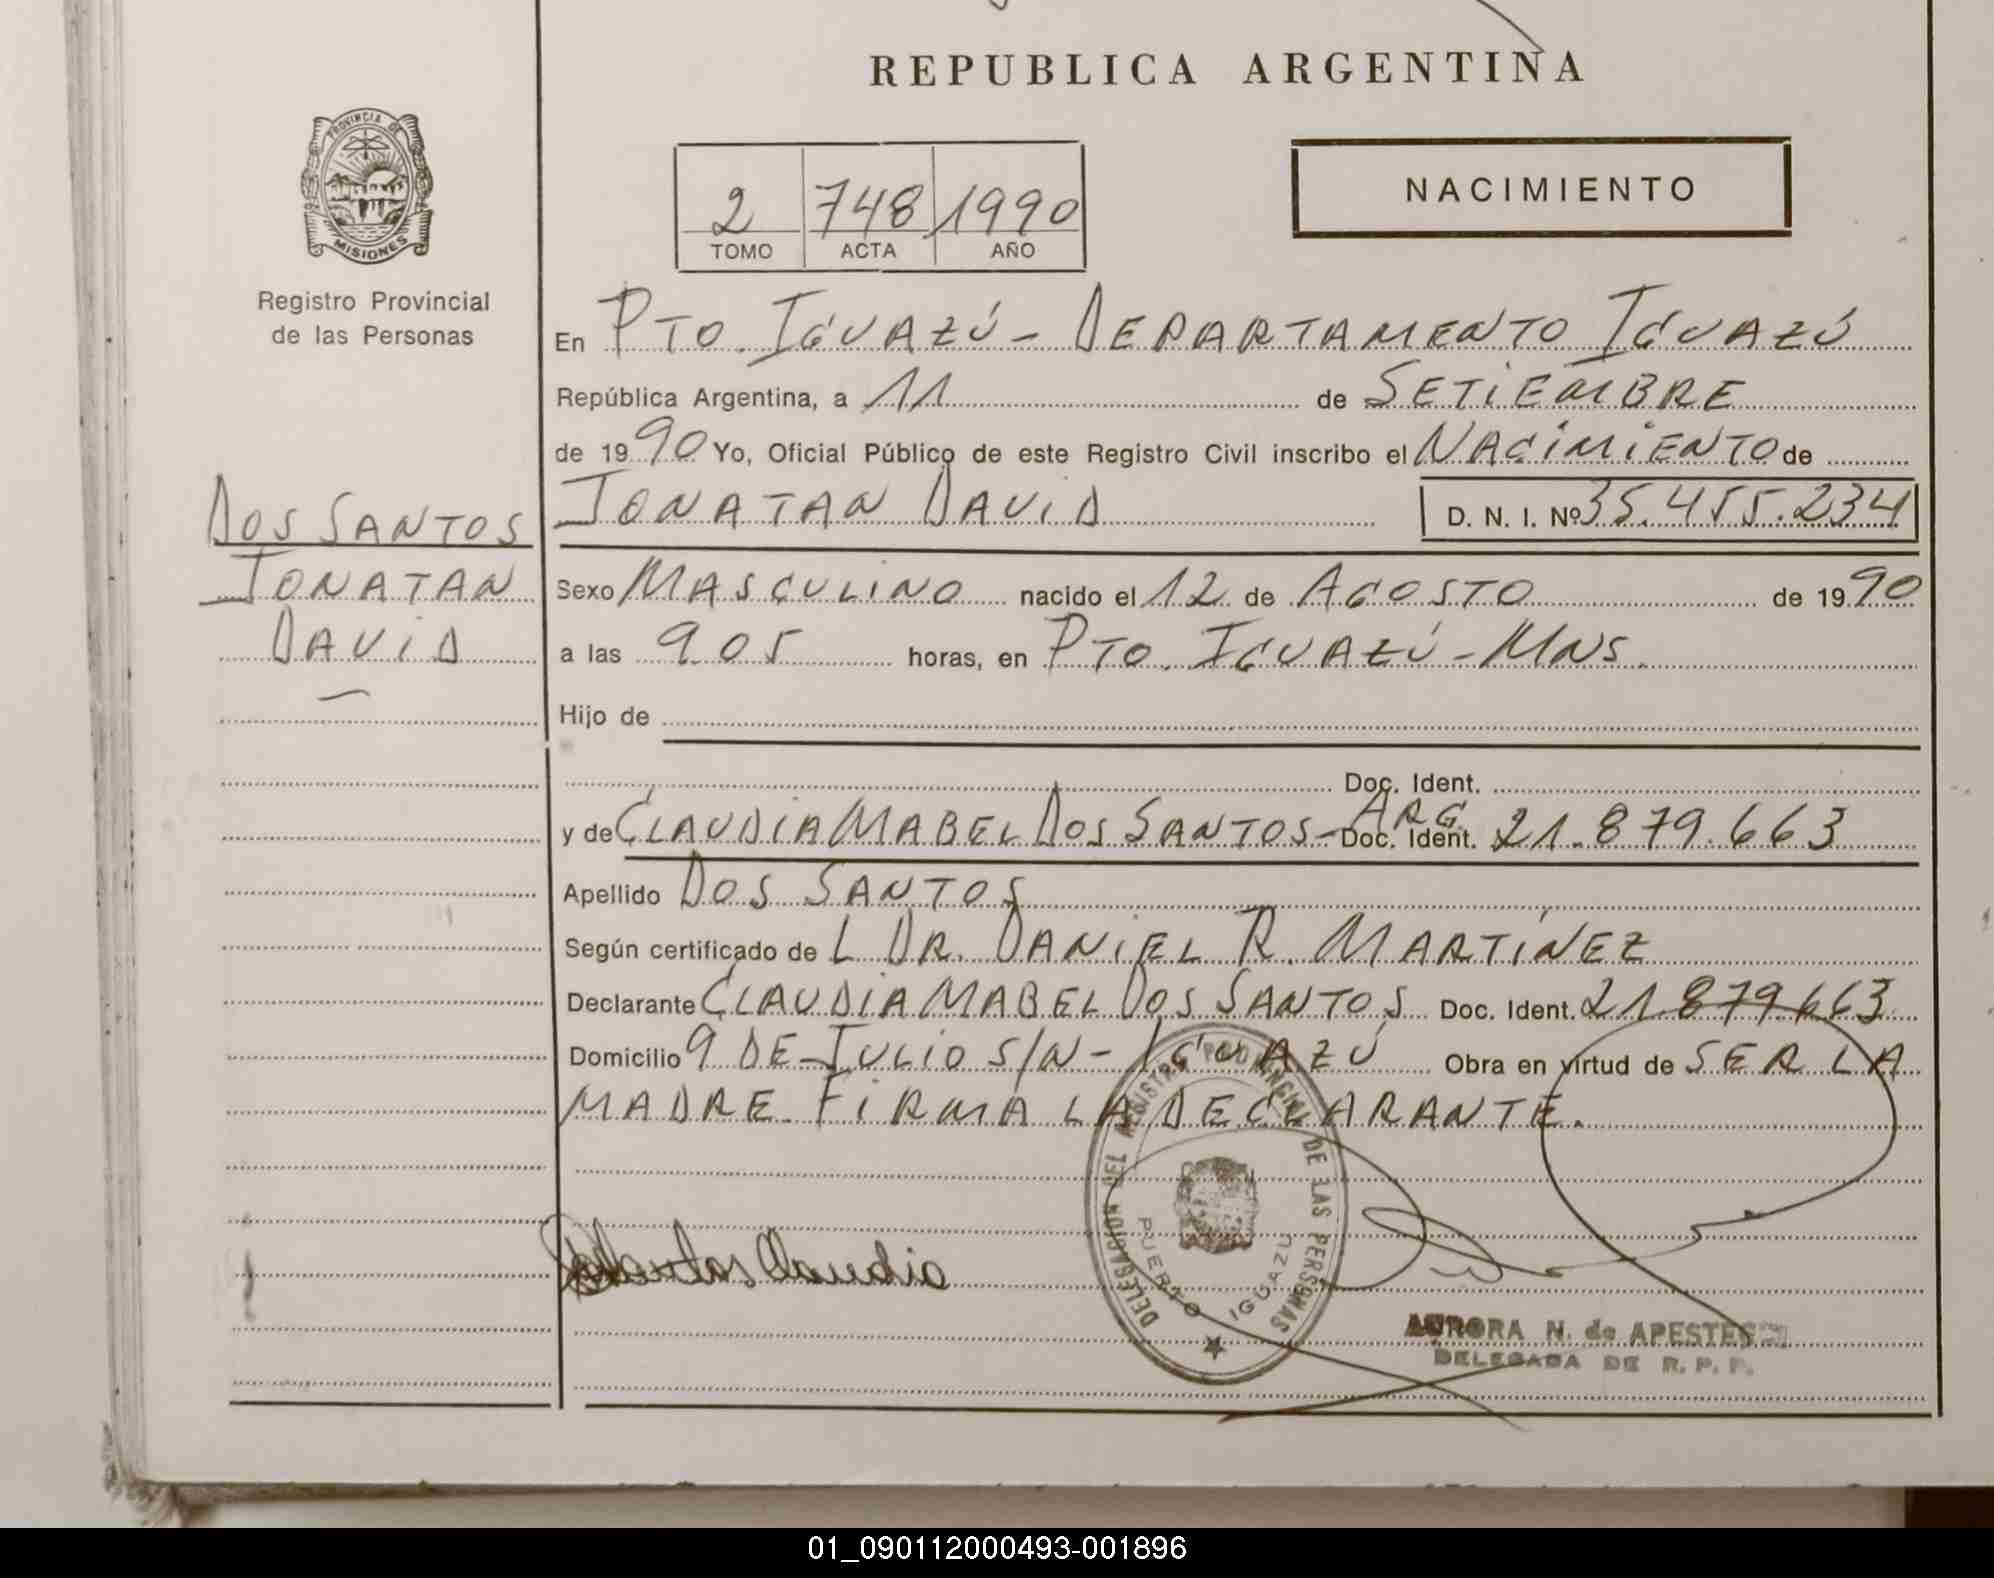 REPUBLICA ARGENTINA
PROVINCIA DE
MISIONES
Registro Provincial
de las Personas
NACIMIENTO
2 748 1990
TOMO ACTA AÑO
En PTO. IGUAZÚ - DEPARTAMENTO IGUAZÚ
República Argentina, a 11 de SETIEMBRE
de 1990 Yo, Oficial Público de este Registro Civil inscribo el NACIMIENTO de
JONATAN DAVID D. N. I. Nº 35.455.234
DOS SANTOS
JONATAN
DAVID
Sexo MASCULINO nacido el 12 de AGOSTO de 1990
a las 9.05 horas, en PTO. IGUAZÚ - MNS.
Hijo de
Doc. Ident.
y de CLAUDIA MABEL DOS SANTOS - ARG. Doc. Ident. 21.879.663
Apellido DOS SANTOS
Según certificado de L DR. DANIEL R. MARTÍNEZ
Declarante CLAUDIA MABEL DOS SANTOS Doc. Ident. 21.879.663
Domicilio 9 DE JULIO S/N - IGUAZÚ Obra en virtud de SER LA
MADRE. FIRMA LA DECLARANTE.
DELEGACION DEL REGISTRO PROVINCIAL DE LAS PERSONAS
PUERTO IGUAZU
AURORA N. de
DELEGADA DE R. P. P.
01_090112000493-001896